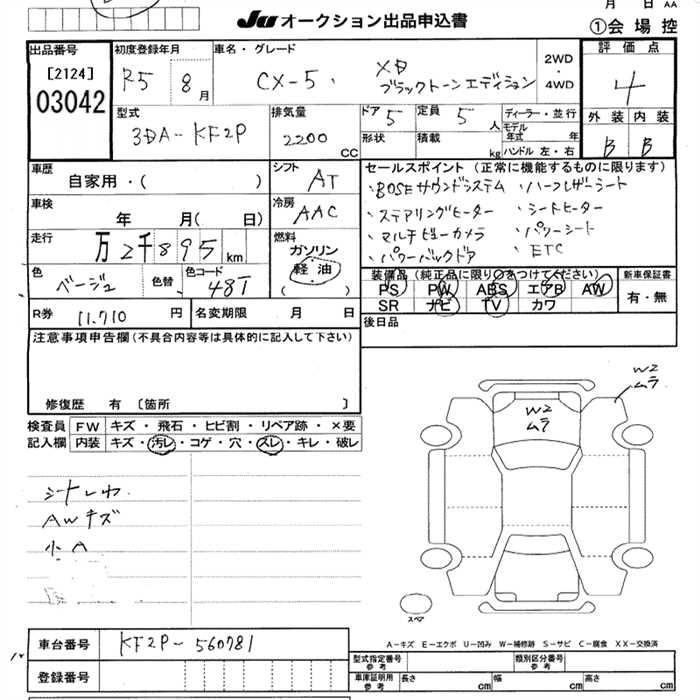 月 日 AA
JU オークション出品申込書
①会場控
出品番号
[2124]
03042
初度登録年月
R5 8月
車名・グレード
CX-5. XD
ブラックトーンエディション
2WD
・
4WD
評価点
4
型式
3DA-KF2P
排気量
2200
CC
ドア
5
定員
5
人
形状
積載
kg
ディーラー・並行
モデル年式 年
ハンドル 左・右
外装 内装
B B
車歴
自家用・( )
シフト
AT
車検
年 月( 日)
冷房
AAC
走行
万2千895
km
燃料
ガソリン
軽油
( )
色
ベージュ
色替
色コード
48T
R券
11,710 円
名変期限 月 日
セールスポイント (正常に機能するものに限ります)
・BOSEサウンドシステム ・ハーフレザーシート
・ステアリングヒーター ・シートヒーター
・マルチビューカメラ ・パワーシート
・パワーバックドア ・ETC
装備品 (純正品に限り○をつけてください)
PS PW ABS エアB AW
SR ナビ TV カワ
新車保証書
有・無
後日品
注意事項申告欄 (不具合内容等は具体的に記入して下さい)
修復歴 有 〔箇所 〕
検査員
記入欄
FW キズ・飛石・ヒビ割・リペア跡・×要
内装 キズ・汚レ・コゲ・穴・スレ・キレ・破レ
シートシワ
AWキズ
小A
W2
ムラ
W2
ムラ
スペア
A－キズ E－エクボ U－凹み W－補修跡 S－サビ C－腐食 XX－交換済
車台番号
KF2P-560781
登録番号
型式指定番号
参考
類別区分番号
参考
車庫証明用
参考
長さ cm
幅 cm
高さ cm